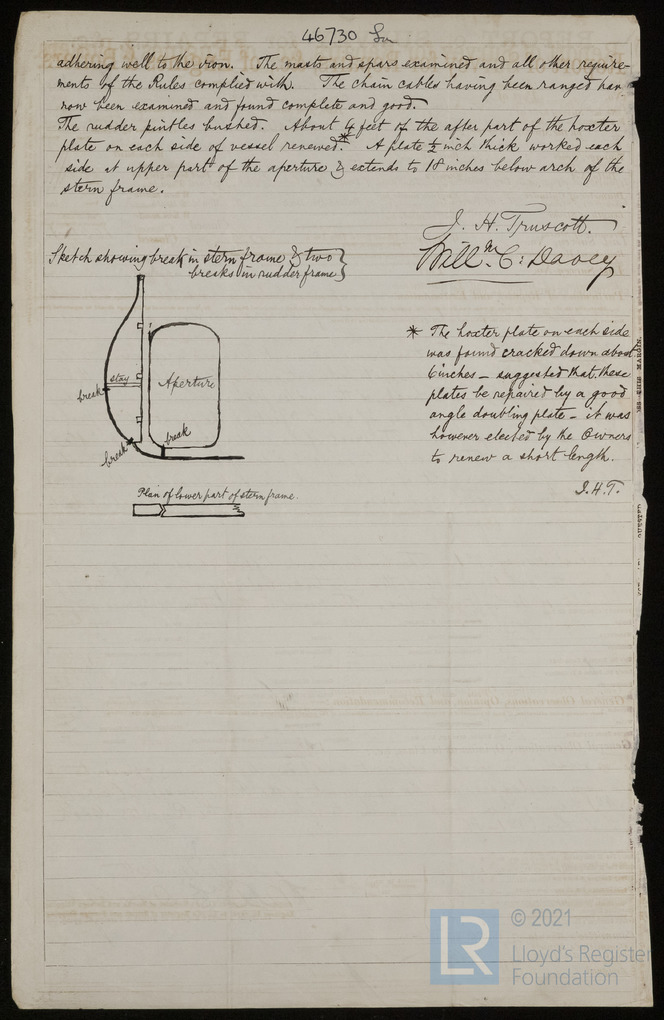 46730 Lon
adhering well to the iron. The masts and spars examined and all other require-
ments of the Rules complied with. The chain cables having been ranged hav
now been examined and found complete and good.
The rudder pintles bushed. About 4 feet of the after part of the hoxter
plate on each side of vessel renewed.* A plate ½ inch thick worked each
side at upper part of the aperture & extends to 18 inches below arch of the
stern frame.
J. H. Truscott.
Willm. C: Davey
Sketch showing break in stern frame & two
breaks in rudder frame
stay
break
Aperture
break
break
Plan of lower part of stern frame.
* The hoxter plate on each side
was found cracked down about
6 inches – suggested that these
plates be repaired by a good
angle doubling plate – it was
however elected by the Owners
to renew a short length.
J.H.T.
THIS MARGIN.
General Observations, Opinion, and Recommendation
LR
© 2021
Lloyd's Register
Foundation